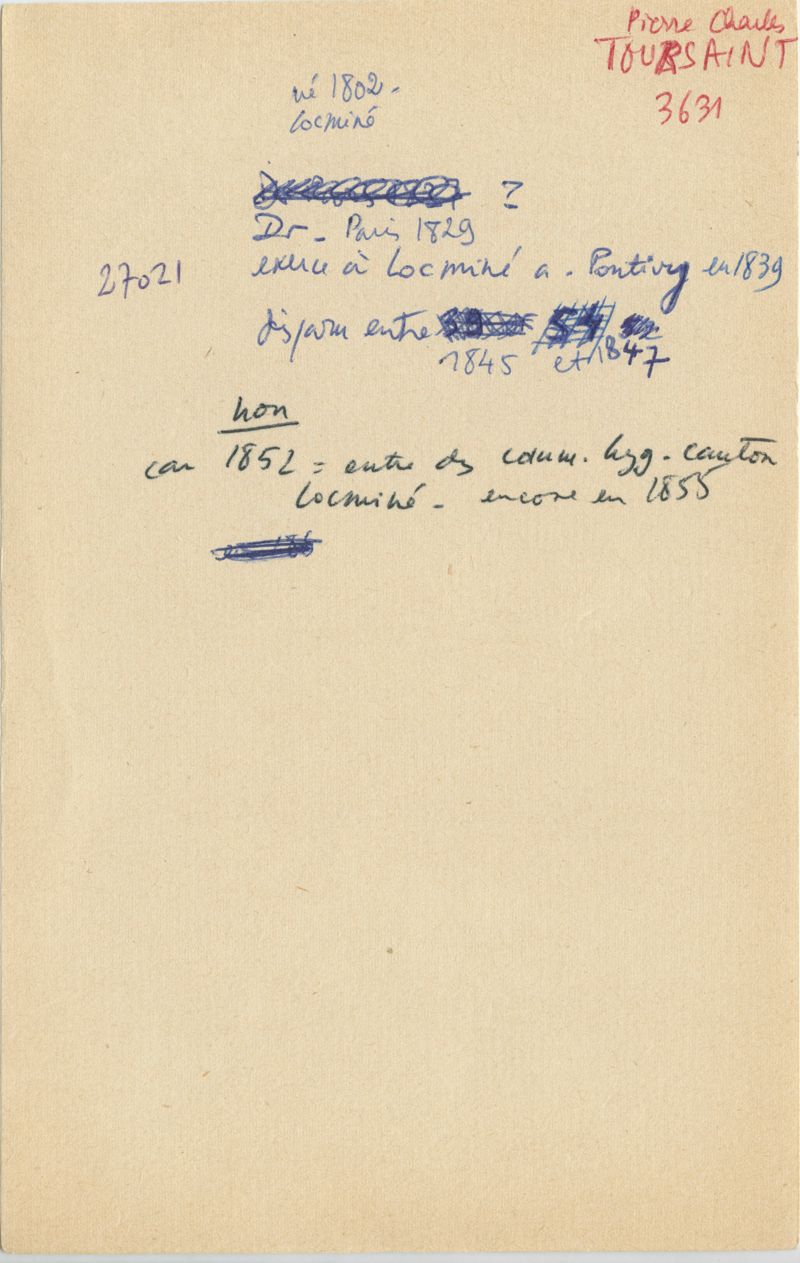 Pierre Charles
TOUSSAINT
3631
né 1802.
Locminé
?
Dr - Paris 1829
27021 exerce à Locminé a. Pontivy en 1839
disparu entre
1845 et 1847
non
car 1852 = entre ds comm. hyg. canton
Locminé - encore en 1855